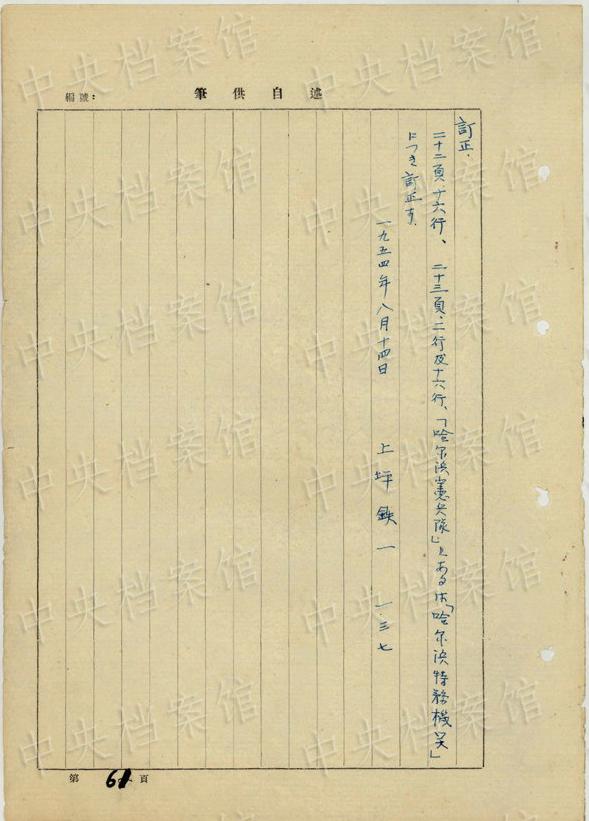 編號:
筆供自述
訂正.
二十二頁十六行、二十三頁、二行及十六行、「哈尔浜憲兵隊」とあるは「哈尔浜特務機関」
につき訂正す.
一九五四年八月十四日 上坪鉄一 一.三七
第 61 頁
中央档案馆